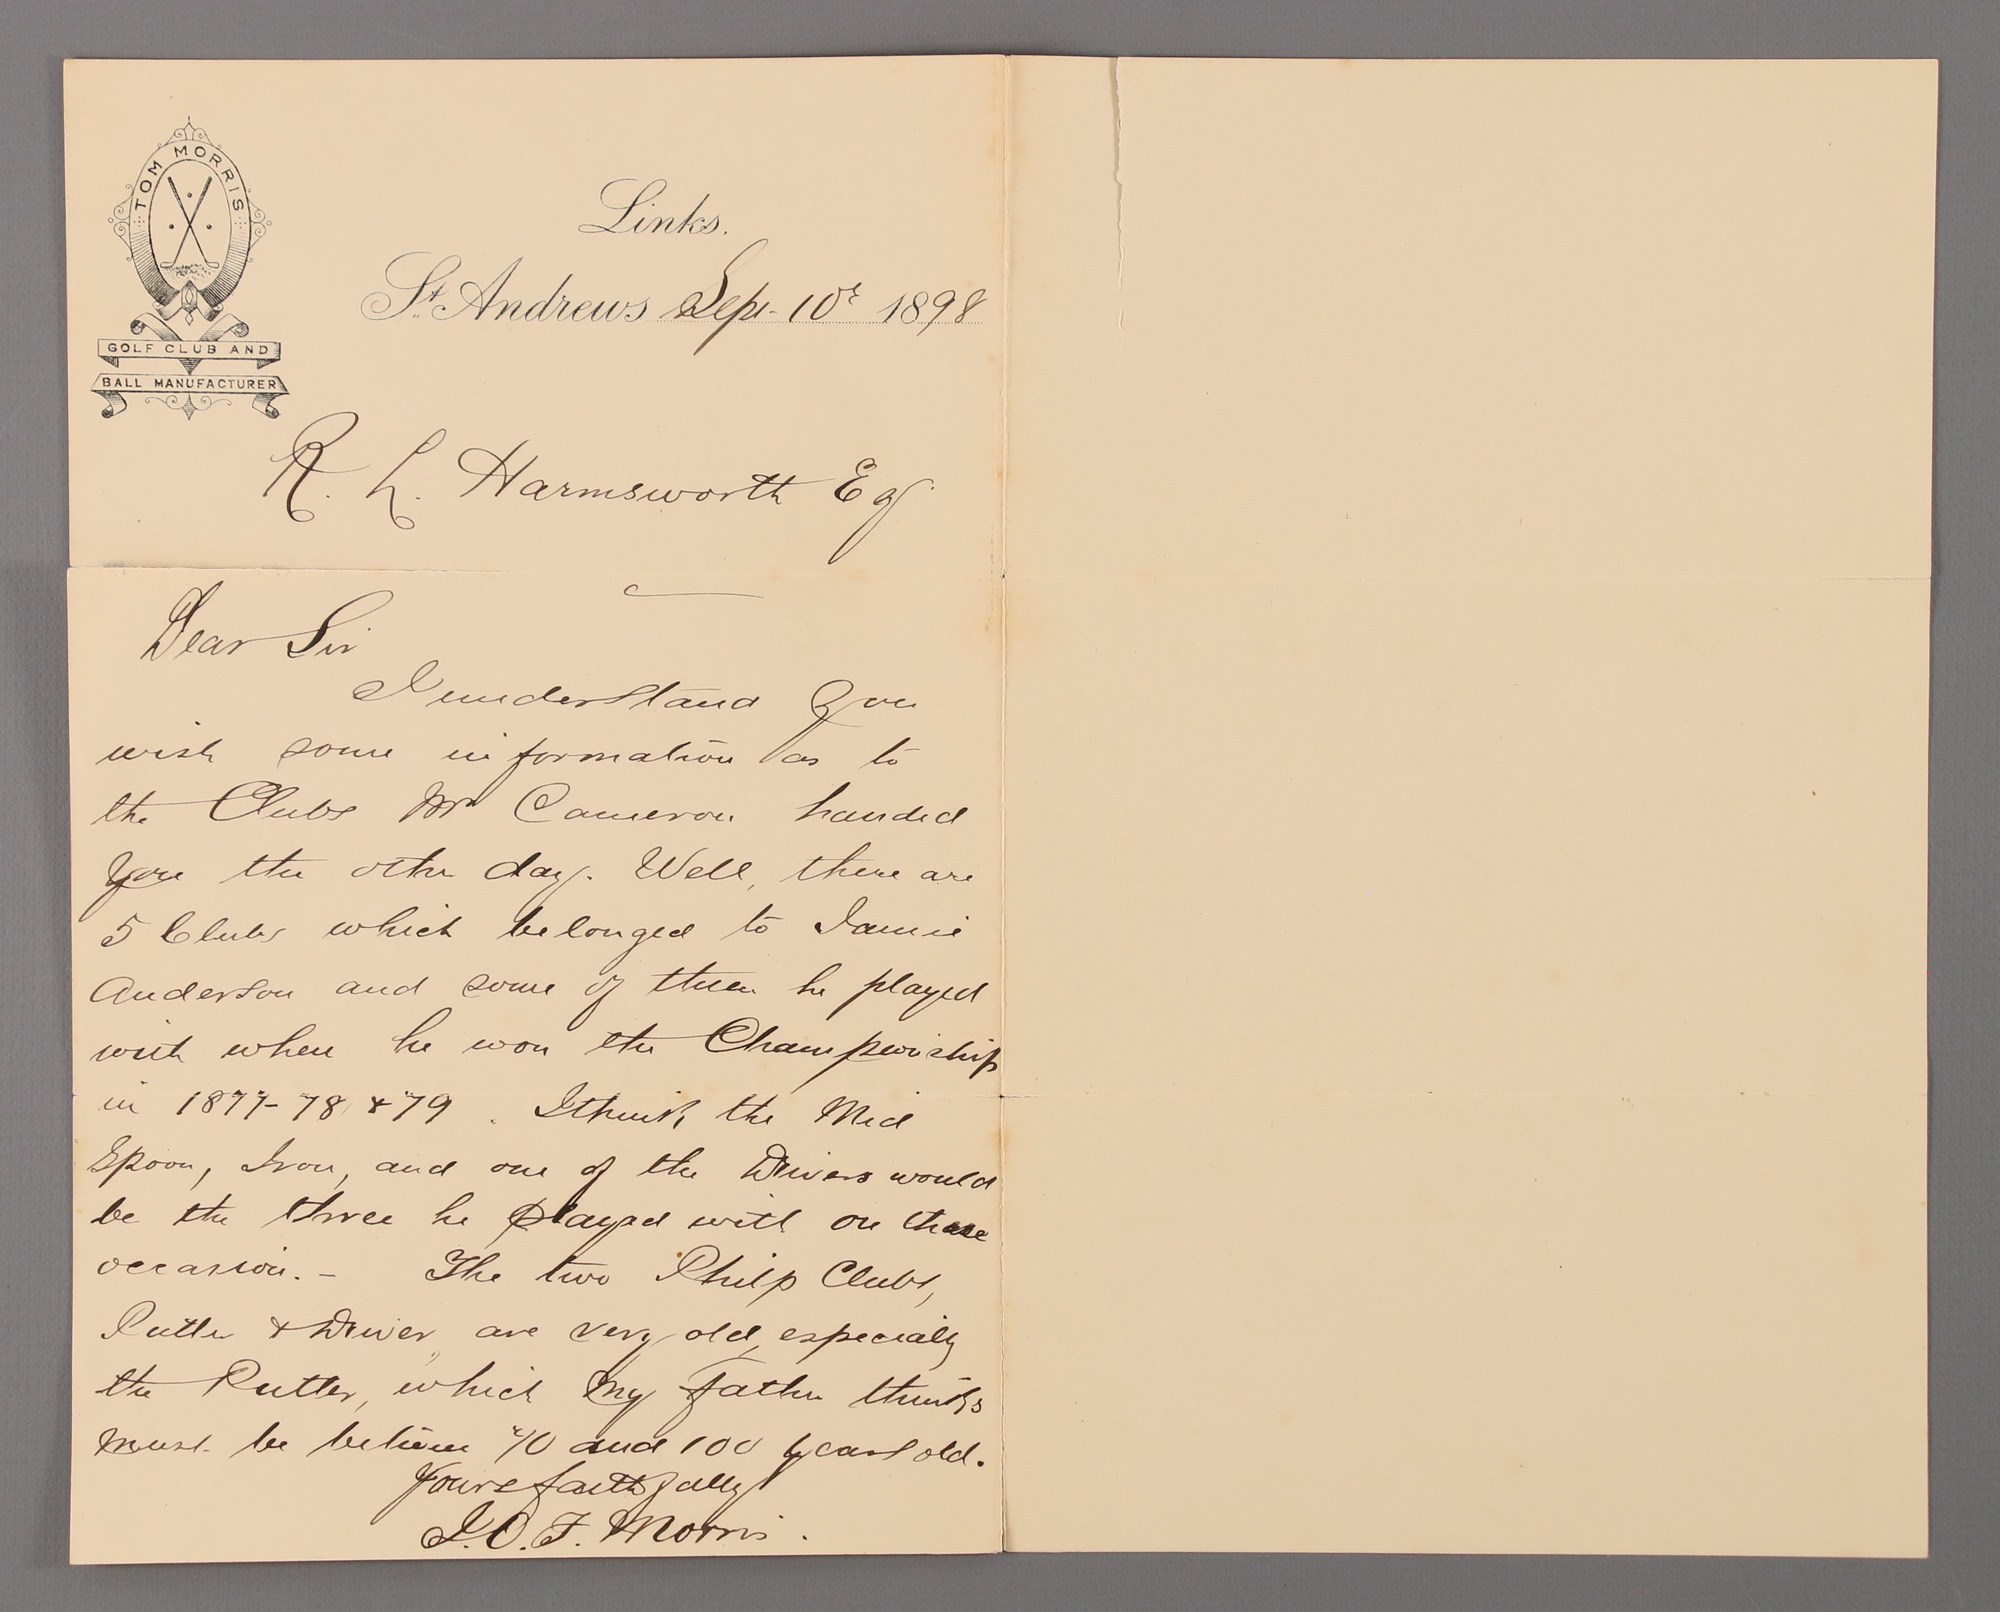 TOM MORRIS
GOLF CLUB AND
BALL MANUFACTURER
Links.
St. Andrews Sep. 10th 1898
R. L. Harmsworth Esq.
Dear Sir
I understand you
wish some information as to
the Clubs Mr Cameron handed
you the other day. Well, there are
5 Clubs which belonged to Jamie
Anderson and some of them he played
with when he won the Championship
in 1877-78 & 79. I think the Mid
Spoon, Iron, and one of the Drivers would
be the three he played with on these
occasion. - The two Philp Clubs,
Putter & Driver, are very old, especially
the Putter, which my father thinks
must be between 90 and 100 years old.
Yours faithfully
J.O.F. Morris.